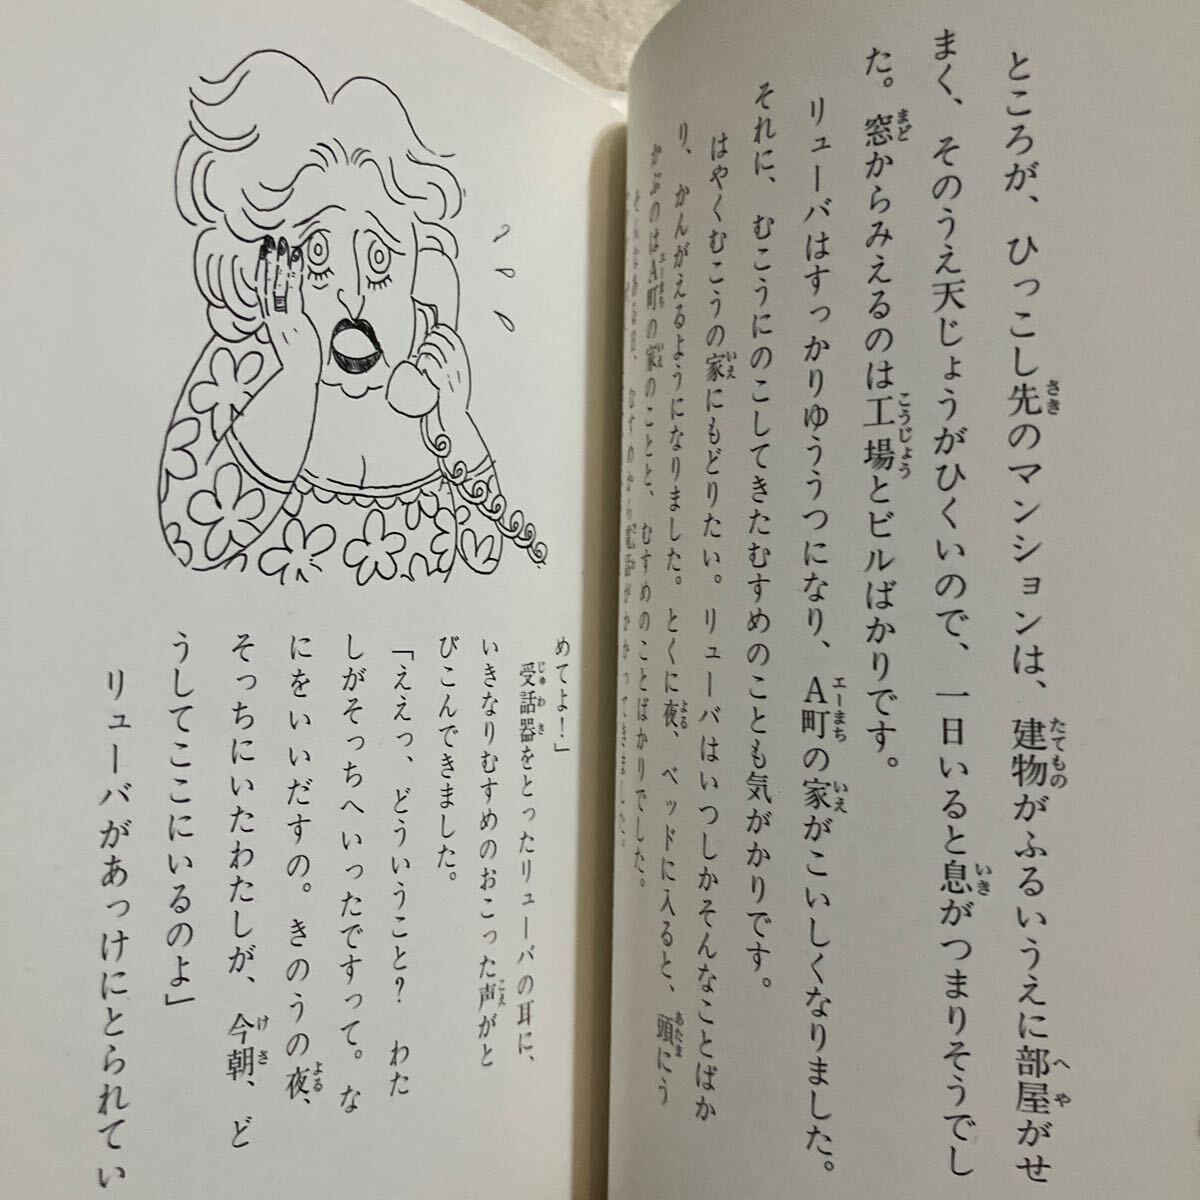 ところが、ひっこし先のマンションは、建物がふるいうえに部屋がせ
まく、そのうえ天じょうがひくいので、一日いると息がつまりそうでし
た。窓からみえるのは工場とビルばかりです。
リューバはすっかりゆううつになり、A町の家がこいしくなりました。
それに、むこうにのこしてきたむすめのことも気がかりです。
はやくむこうの家にもどりたい。リューバはいつしかそんなことばか
り、かんがえるようになりました。とくに夜、ベッドに入ると、頭にう
かぶのはA町の家のことと、むすめのことばかりでした。
むすめから電話がかかってきました。
めてよ！」
受話器をとったリューバの耳に、
いきなりむすめのおこった声がと
びこんできました。
「ええっ、どういうこと？　わた
しがそっちへいったですって。な
にをいいだすの。きのうの夜、
そっちにいたわたしが、今朝、ど
うしてここにいるのよ」
リューバがあっけにとられてい